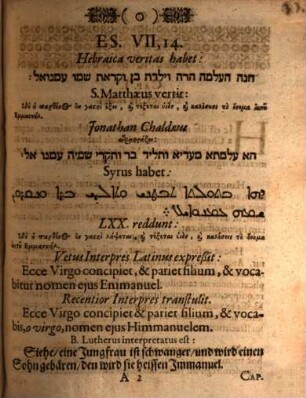 ( o )
ES. VII, 14.
Hebraica veritas habet:
הנה העלמה הרה וילדת בן וקראת שמו עמנואל:
S. Matthæus vertit:
Ἰδοὺ ἡ παρθένος ἐν γαστρὶ ἕξει, ϗ τέξεται υἱὸν, ϗ καλέσεις τὸ ὄνομα αὐτοῦ
Ἐμμανυήλ.
Jonathan Chaldæus
הא עלמתא מעדיא ותליד בר ותקרי שמיה עמנו אל:
Syrus habet:
LXX. reddunt:
Ἰδοὺ ἡ παρθένος ἐν γαστρὶ λήψεται, ϗ τέξεται υἱὸν, ϗ καλέσεις τὸ ὄνομα
αὐτοῦ Ἐμμανυήλ.
Vetus Interpres Latinus expressit:
Ecce Virgo concipiet, & pariet filium, & voca-
bitur nomen ejus Emmanuel.
Recentior Interpres transtulit.
Ecce Virgo concipiet & pariet filium, & voca-
bis, o virgo, nomen ejus Himmanuelem.
B. Lutherus interpretatus est:
Siehe/eine Jungfrau ist schwanger/und wird einen
Sohn gebären, den wird sie heissen Immanuel.
A 2 CAP.